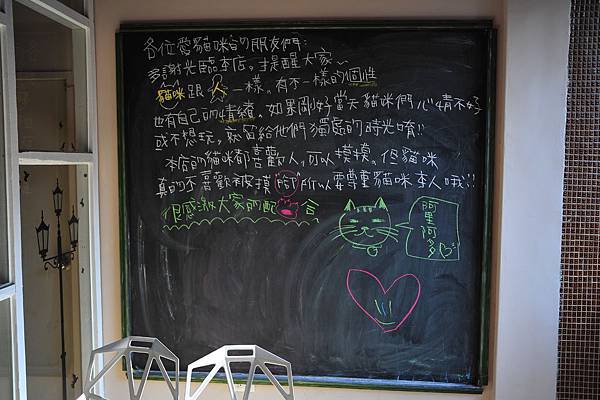 各位愛貓咪的朋友們:
多謝光臨本店,才提醒大家~
貓咪跟人一樣。有不一樣的個性
也有自己的情緒。如果剛好當天貓咪們心情不好
或不想玩,就留給他們獨處的時光唷!!
本店的貓咪都喜歡人,可以摸摸。但貓咪
真的不喜歡被摸 所以要尊重貓咪本人哦!!
很感激大家的配合
阿里阿多